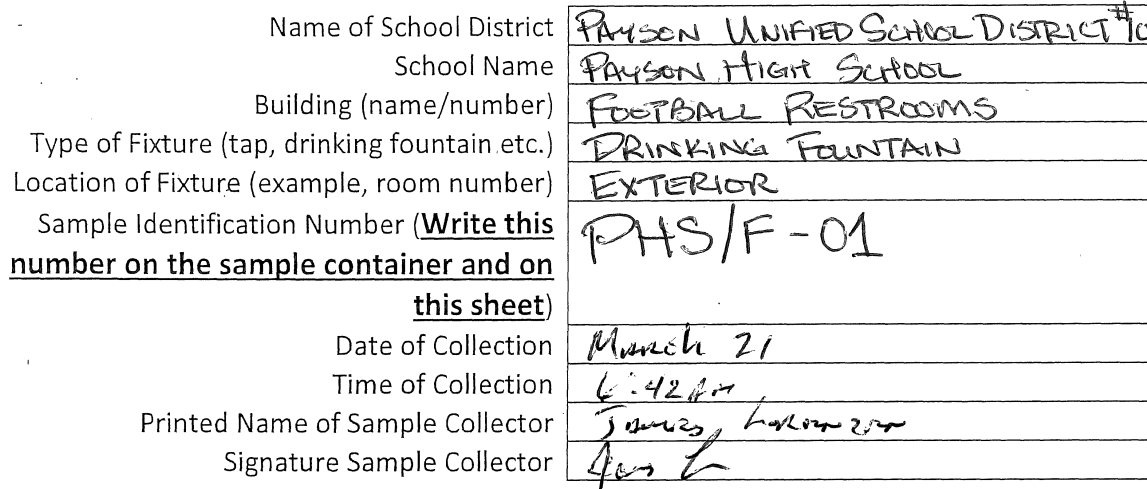 Name of School District PAYSON UNIFIED SCHOOL DISTRICT #10
School Name PAYSON HIGH SCHOOL
Building (name/number) FOOTBALL RESTROOMS
Type of Fixture (tap, drinking fountain etc.) DRINKING FOUNTAIN
Location of Fixture (example, room number) EXTERIOR
Sample Identification Number (Write this PHS/F-01
number on the sample container and on
this sheet)
Date of Collection March 21
Time of Collection 6:42 AM
Printed Name of Sample Collector James
Signature Sample Collector